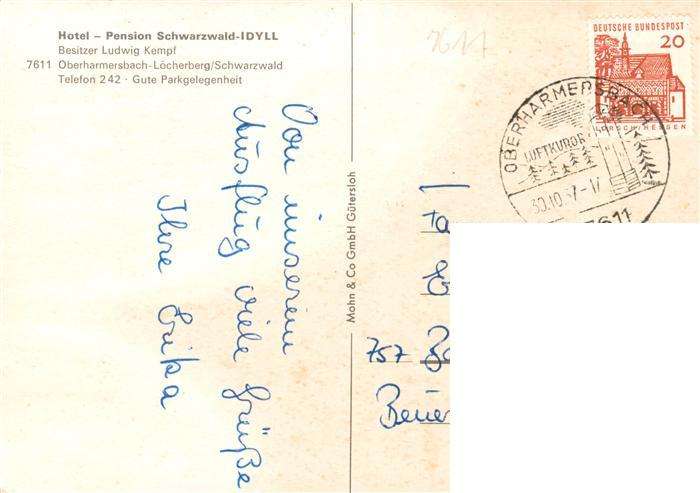 Hotel – Pension Schwarzwald-IDYLL
Besitzer Ludwig Kempf
7611 Oberharmersbach-Löcherberg/Schwarzwald
Telefon 242 · Gute Parkgelegenheit
Von unserem
Ausflug viele Grüße
Ihre Erika
Mohn & Co GmbH Gütersloh
7611
DEUTSCHE BUNDESPOST
20
LORSCH/HESSEN
OBERHARMERSBACH
LUFTKURORT
30.10.67-17
7611
Ta
757